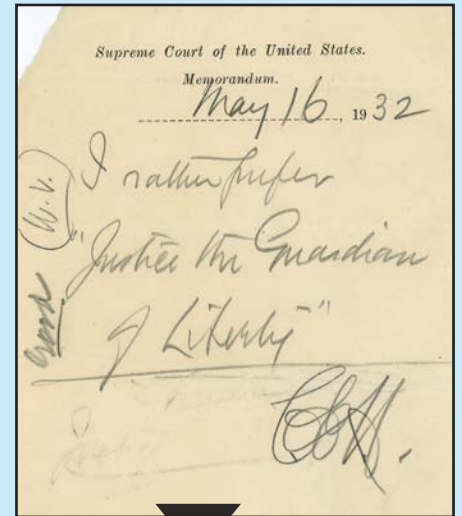 Supreme Court of the United States.
Memorandum.
May 16, 1932
I rather prefer
"Justice the Guardian
of Liberty"
CEH.
good (W.V.)